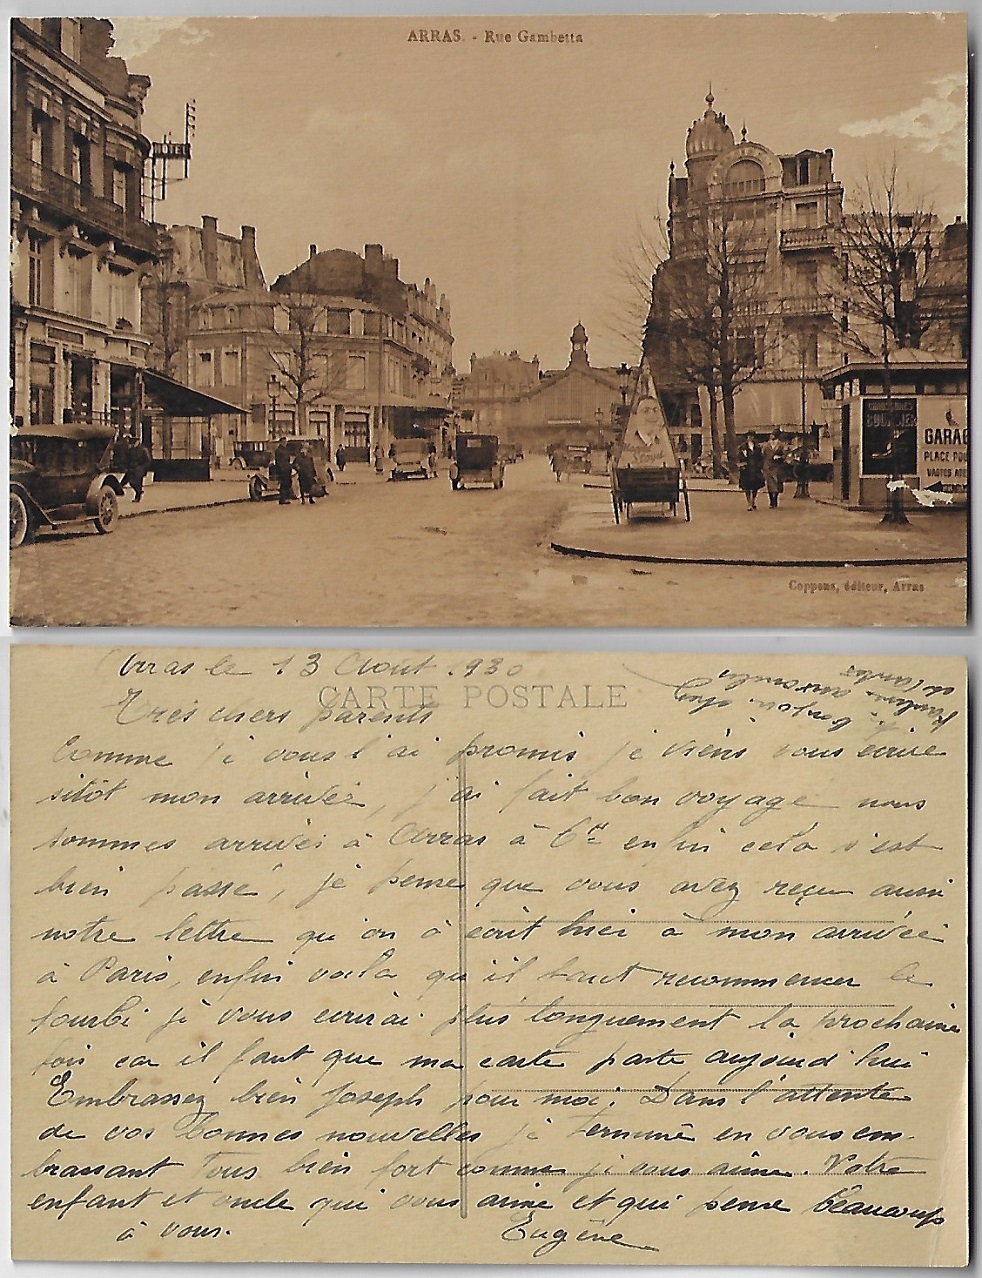 ARRAS. - Rue Gambetta
HOTEL
GARAG
PLACE
Coppens, éditeur, Arras
Arras le 13 Aout 1930
CARTE POSTALE
Très chers parents
Comme je vous l'ai promis je viens vous écrire
sitôt mon arrivée, j'ai fait bon voyage nous
sommes arrivés à Arras à 6h enfin cela s'est
bien passé, je pense que vous avez reçu aussi
notre lettre qu'on à écrit hier à mon arrivée
à Paris, enfin voila qu'il faut recommencer le
fourbi je vous ecrirai plus longuement la prochaine
fois car il faut que ma carte parte aujourd'hui
Embrassez bien Joseph pour moi. Dans l'attente
de vos bonnes nouvelles je termine en vous em-
brassant tous bien fort comme je vous aime. Votre
enfant et oncle qui vous aime et qui pense beaucoup
à vous.
Eugène